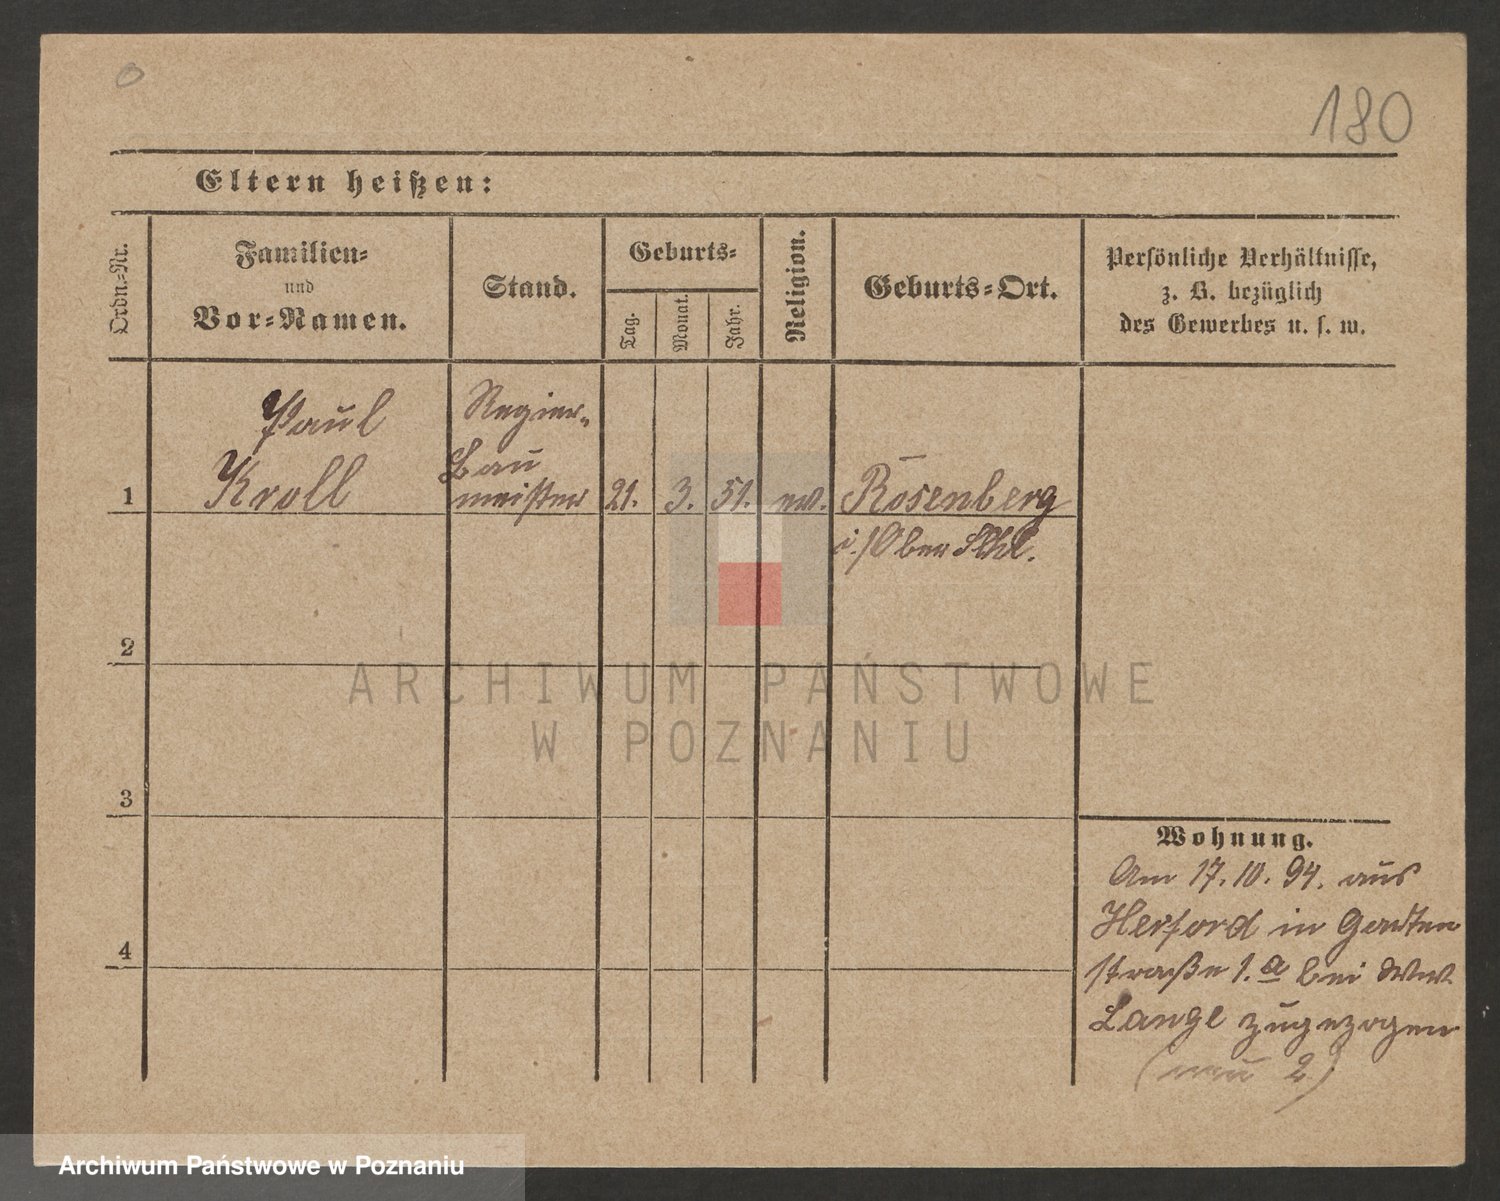 0
180
Eltern heißen:
Ordn.-Nr.
Familien-
und
Vor-Namen.
Stand.
Geburts-
Tag.
Monat.
Jahr.
Religion.
Geburts-Ort.
Persönliche Verhältnisse,
z. B. bezüglich
des Gewerbes u. s. w.
Paul
Kroll
Regier-
Bau
meister
1
21.
3.
51.
ev.
Rosenberg
i./Ober Schl.
2
3
4
Wohnung.
Am 17.10.94. aus
Herford in Garten
straße 1.a bei Wwe.
Lange zugezogen
(neu 2)
ARCHIWUM PAŃSTWOWE
W POZNANIU
Archiwum Państwowe w Poznaniu